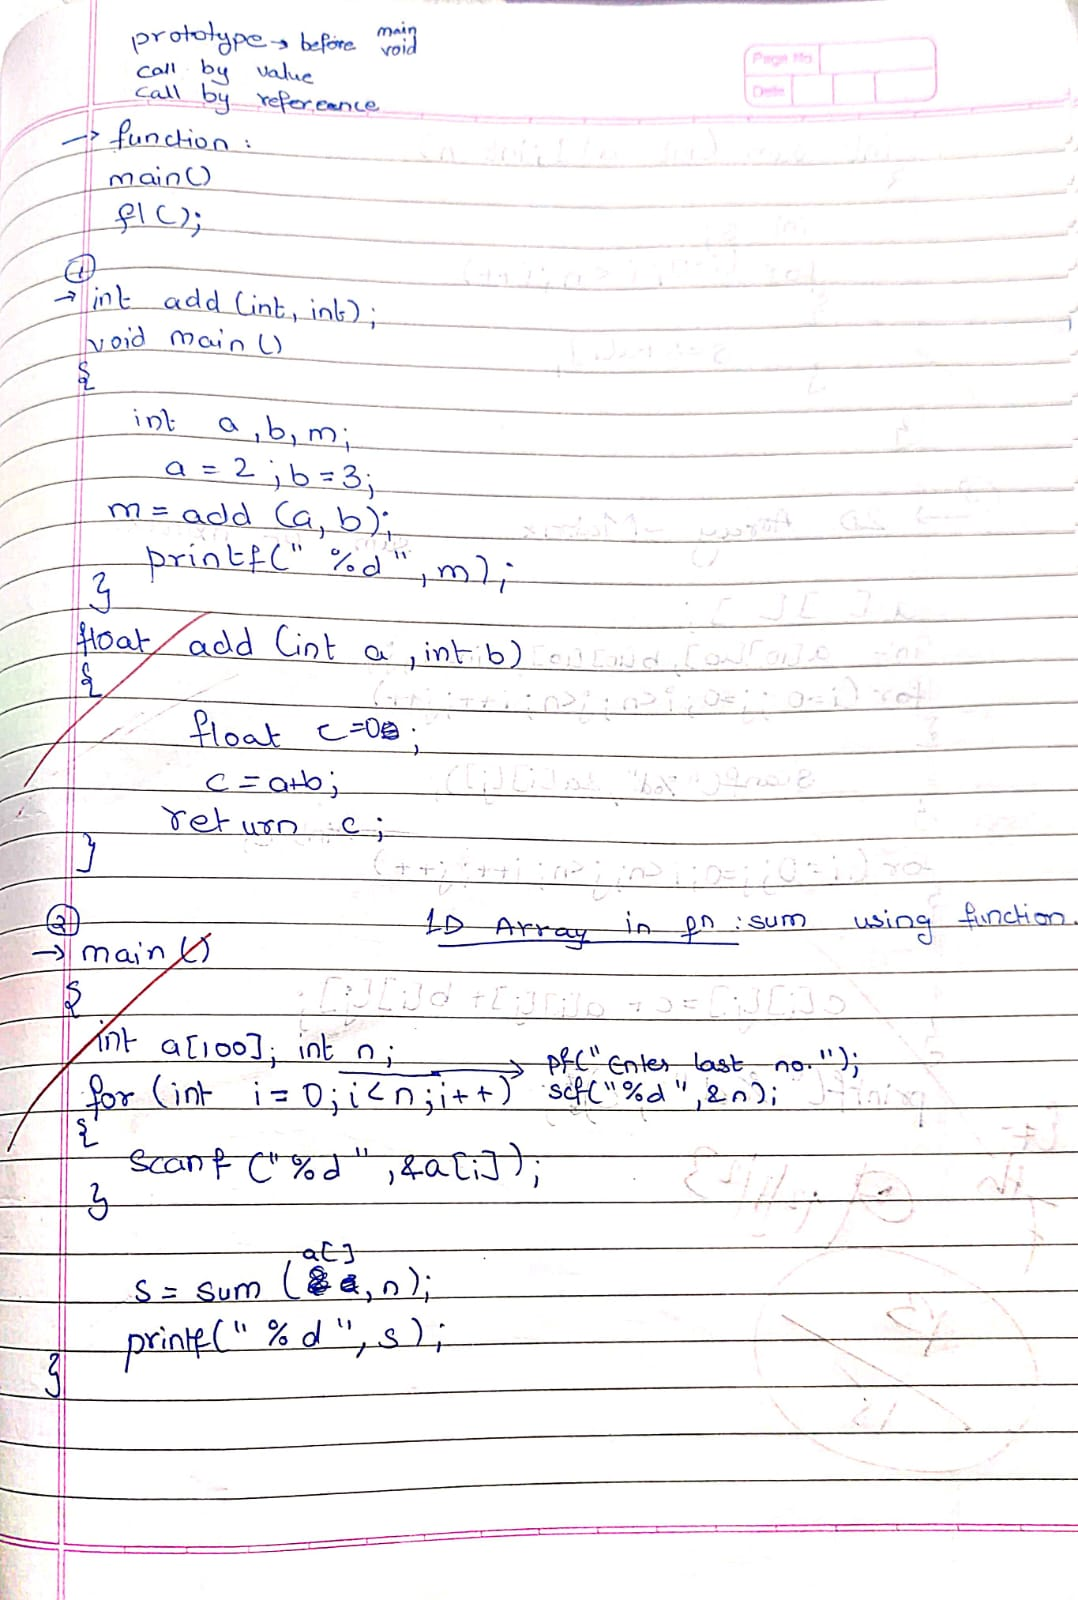 prototype → before main void
call by value
call by refereance
Page No
Date
→ function :
main()
f1();
①
→ int add (int, int);
void main ()
{
int a, b, m;
a = 2 ; b = 3;
m = add (a, b);
printf(" %d", m);
}
float add (int a, int b)
{
float c=0;
c = a+b;
return c;
}
② 1D Array in fn : sum using function.
→ main ()
{
int a[100]; int n; → pf("Enter last no.");
for (int i = 0; i<n; i++) scf("%d", &n);
{
scanf ("%d", &a[i]);
}
a[]
s = sum ( , n);
printf(" %d", s);
}